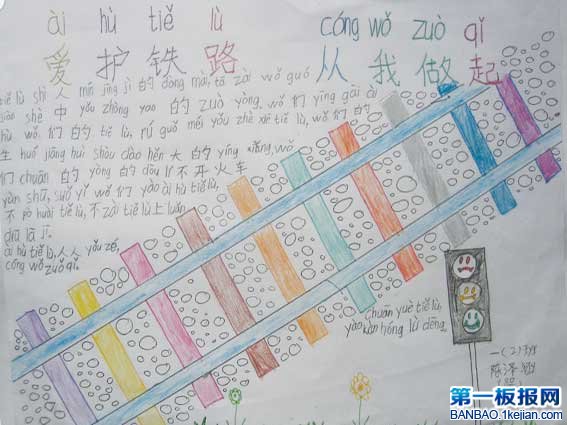 ài hù tiě lù cóng wǒ zuò qǐ
爱护铁路 从我做起
tiě lù shì 人 mín jīng jì 的 dòng mài, tā zài wǒ guó
shè 中 yǒu zhòng yao 的 zuò yòng. wǒ 们 yīng gāi ài
hù wǒ 们 的 tiě lù, rú guǒ méi yǒu zhè xiē tiě lù, wǒ 们
生 huó jiāng huì shòu dào hěn 大 的 yíng xiǎng, wǒ
们 chuān 的 yòng 的 dōu lí 不 开 火 车
yùn shū, suǒ yǐ wǒ 们 yào ài hù tiě lù,
不 pò huài tiě lù, 不 zài tiě lù 上 luàn
diū lā jī.
ài hù tiě lù, 人人 yǒu zé,
cóng wǒ zuò qǐ.
chuān yuè tiě lù,
yào kàn hóng lǜ dēng.
一(2)班
第一板报网
BANBAO.1kejian.com